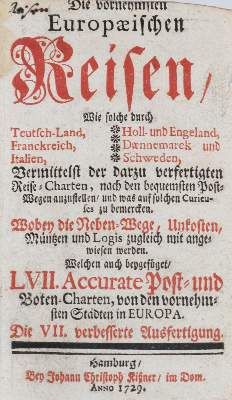 Reisen
Die vornehmsten
Europæischen
Reisen /
Wie solche durch
Teutsch-Land, Holl- und Engeland,
Franckreich, Dænnemarck und
Italien, Schweden,
Vermittelst der darzu verfertigten
Reise-Charten, nach den bequemsten Post-
Wegen anzustellen, und was auf solchen Curieu-
ses zu bemercken.
Wobey die Neben-Wege, Unkosten,
Müntzen und Logis zugleich mit ange-
wiesen werden.
Welchen auch beygefüget,
LVII. Accurate Post- und
Boten-Charten, von den vornehm-
sten Städten in EUROPA.
Die VII. verbesserte Ausfertigung.
Hamburg /
Bey Johann Christoph Kißner / im Dom.
ANNO 1729.